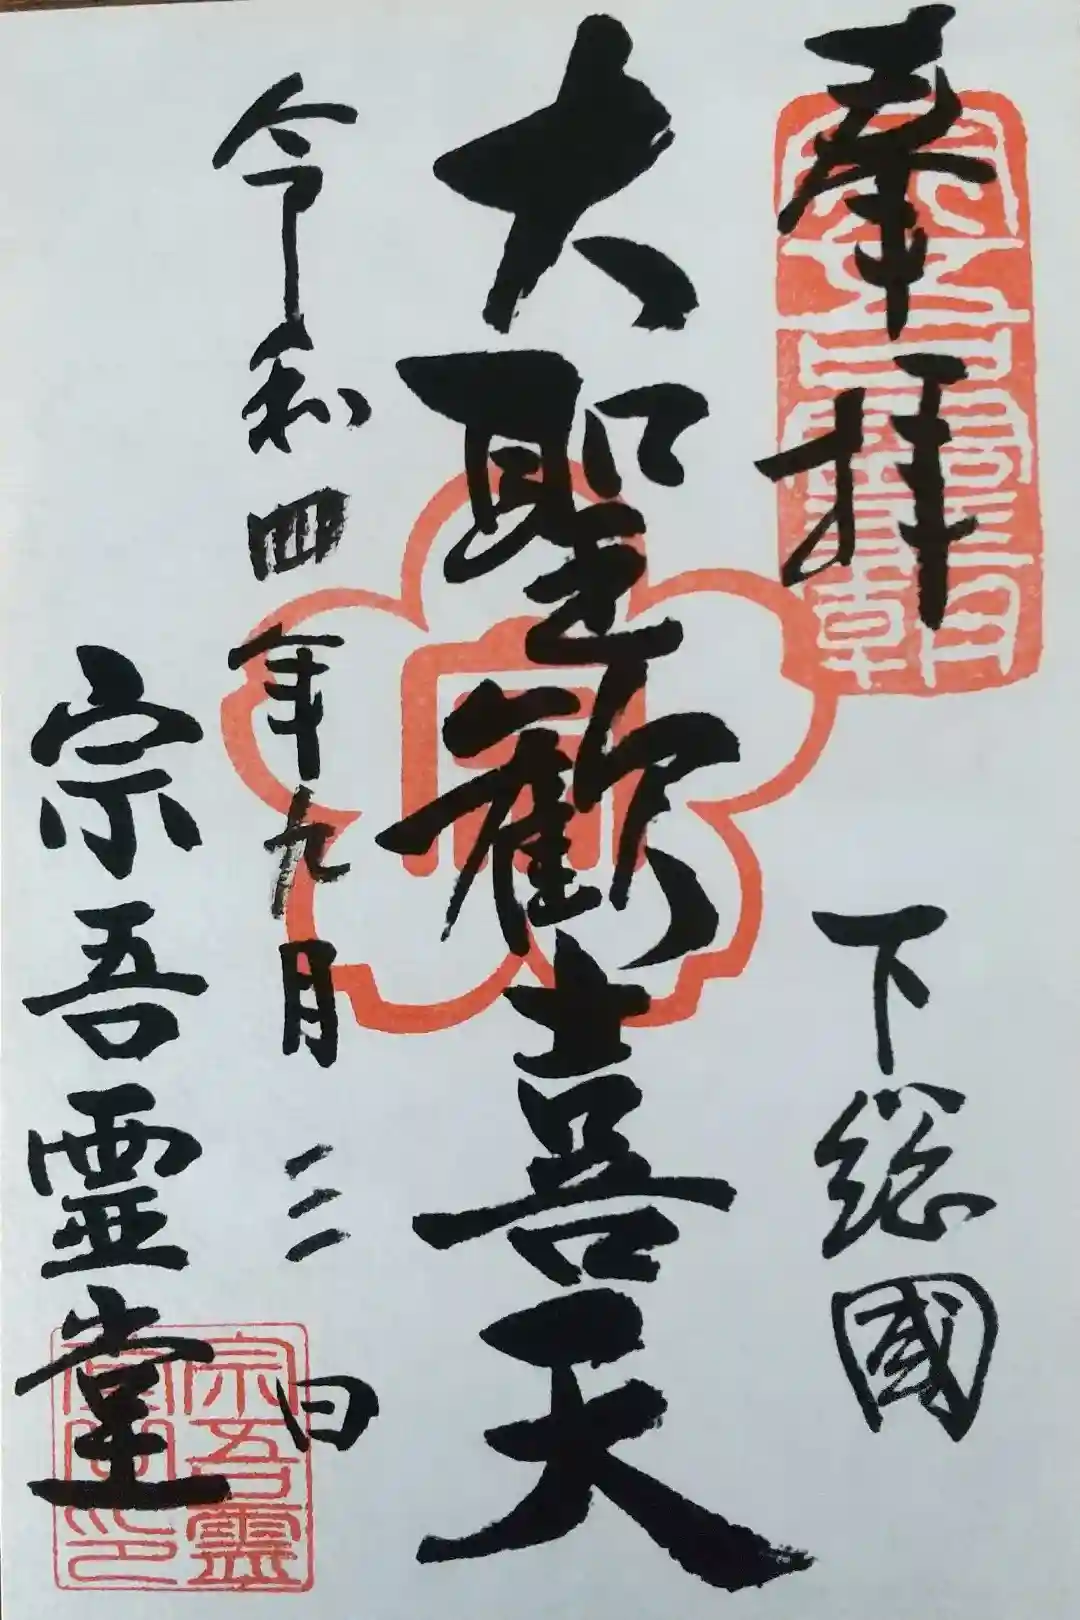 奉拝
下総國
大聖歓喜天
令和四年九月三日
宗吾霊堂
宗吾霊
堂印